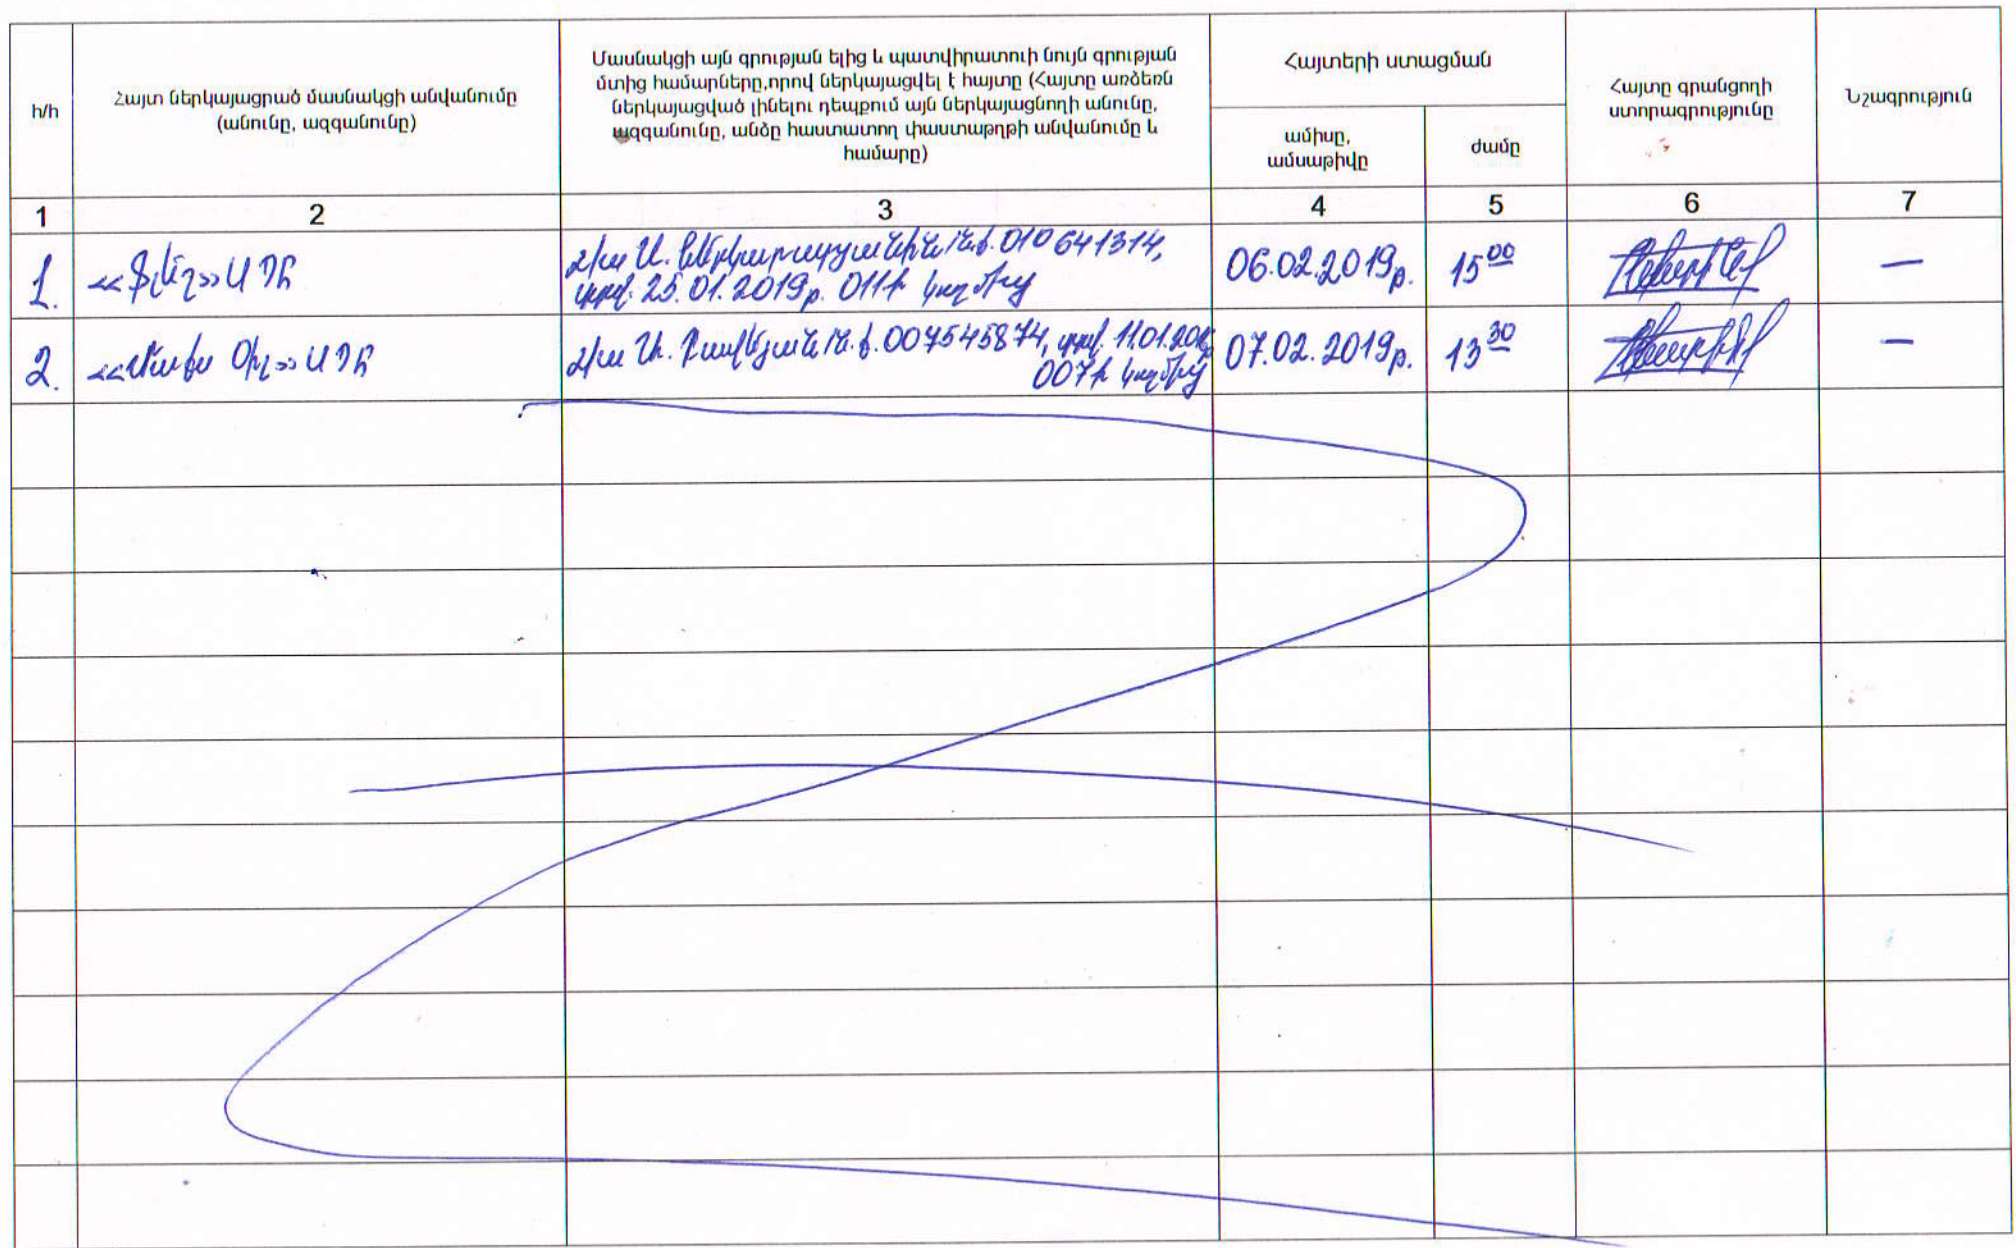 հ/հ
Հայտ ներկայացրած մասնակցի անվանումը
(անունը, ազգանունը)
Մասնակցի այն գրության ելից և պատվիրատուի նույն գրության
մտից համարները,որով ներկայացվել է հայտը (Հայտը առձեռն
ներկայացված լինելու դեպքում այն ներկայացնողի անունը,
ազգանունը, անձը հաստատող փաստաթղթի անվանումը և
համարը)
Հայտերի ստացման
ամիսը,
ամսաթիվը
ժամը
Հայտը գրանցողի
ստորագրությունը
Նշագրություն
1 2 3 4 5 6 7
1. <<Ֆլեշ>> ՍՊԸ
լ/ա Ա. 010641314,
տրվ. 25.01.2019թ. 011-ի կողմից
06.02.2019թ. 15 00 —
2. <<Մաքս Օիլ>> ՍՊԸ
լ/ա 007545874, տրվ. 11.01.
007-ի կողմից
07.02.2019թ. 13 30 —